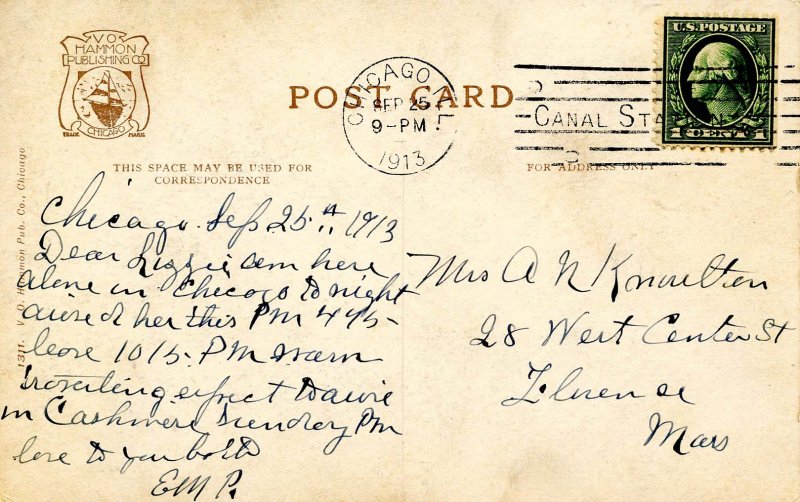 V O
HAMMON
PUBLISHING CO
TRADE CHICAGO MARK
POST CARD
CHICAGO, ILL.
SEP 25
9-PM
1913
CANAL STATION
U.S. POSTAGE
THIS SPACE MAY BE USED FOR
CORRESPONDENCE
FOR ADDRESS ONLY
1311. V. O. Hammon Pub. Co., Chicago
Chicago. Sep. 25th, 1913
Dear Lizzie am here
alone in Chicago to night
arived her this PM 445-
leave 1015- PM warm
traveling expect to arive
in Cashmere Sunday PM
love to you both
EMP.
Mrs A N Knowlton
28 West Center St
Florence
Mass